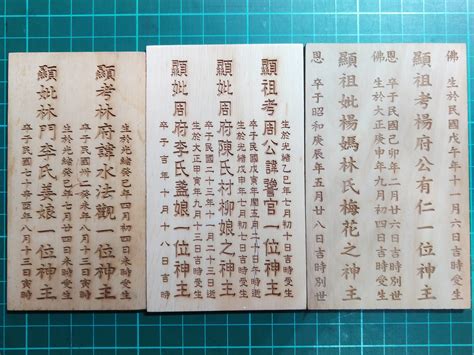 佛
生於民國
年十一月
六日吉時受生
顯祖考楊府公有仁一位神主
卒于民國
卯年二月廿六日吉時別世
佛
生於大正庚申年九月初四日吉時受生
顯祖妣楊媽林氏梅花之神主
恩
卒于昭和庚辰年五月廿八日吉時別世
顯祖考周公諱
官一位神主
生於光緒乙巳年七月初十日吉時受生
卒于民國戊寅年閏五月
日午時逝
顯妣周府陳氏村柳娘之神主
生於光緒戊申年七月初
日吉時受生
卒于民國二十九年十
月二十三日
顯妣周府李氏蓋娘一位神主
生於大正甲寅年
月十三日吉時受生
卒于吉年十月十八日吉時
生於光緒癸巳年四月初四日未時受生
顯考林府諱水法觀一位神主
卒于民國
癸未年八月十三日
時
生於光緒
顯妣林門李氏姜娘一位神主
卒于
年八月十三日寅時